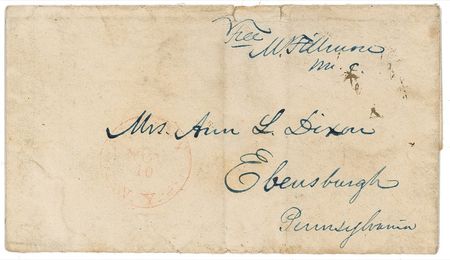 Free
M. Fillmore
M. C.
Mrs. Ann L. Dixon
Ebensburgh
Pennsylvania
10